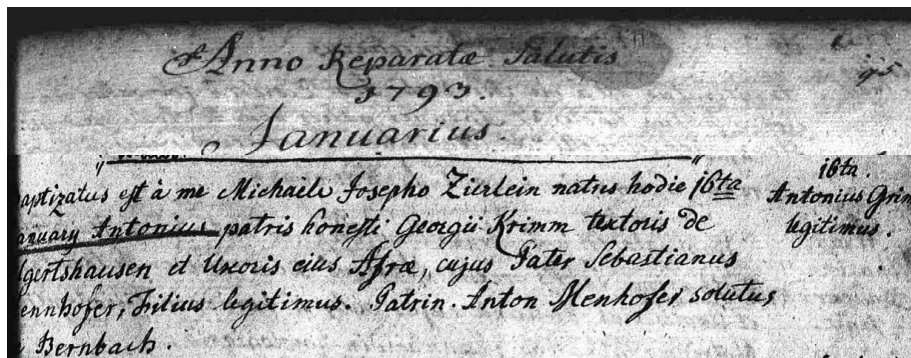 Anno Reparatæ Salutis
1793.
Januarius.
95
aptizatus est à me Michaele Josepho Zierlein natus hodie 16ta
anuary Antonius patris honesti Georgii Krimm textoris de
gertshausen et Uxoris eius Afræ, cujus Pater Sebastianus
ennhofer, Filius legitimus. Patrin. Anton Menhofer solutus
Bernbach.
16ta.
Antonius Grim
legitimus.